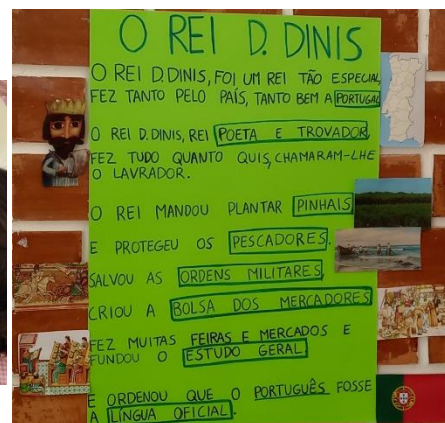 O REI D. DINIS
O REI D.DINIS, FOI UM REI TÃO ESPECIAL
FEZ TANTO PELO PAÍS, TANTO BEM A PORTUGAL
O REI D.DINIS, REI POETA E TROVADOR,
FEZ TUDO QUANTO QUIS, CHAMARAM-LHE
O LAVRADOR.
O REI MANDOU PLANTAR PINHAIS
E PROTEGEU OS PESCADORES.
SALVOU AS ORDENS MILITARES,
CRIOU A BOLSA DOS MERCADORES
FEZ MUITAS FEIRAS E MERCADOS E
FUNDOU O ESTUDO GERAL
E ORDENOU QUE O PORTUGUÊS FOSSE
A LÍNGUA OFICIAL.